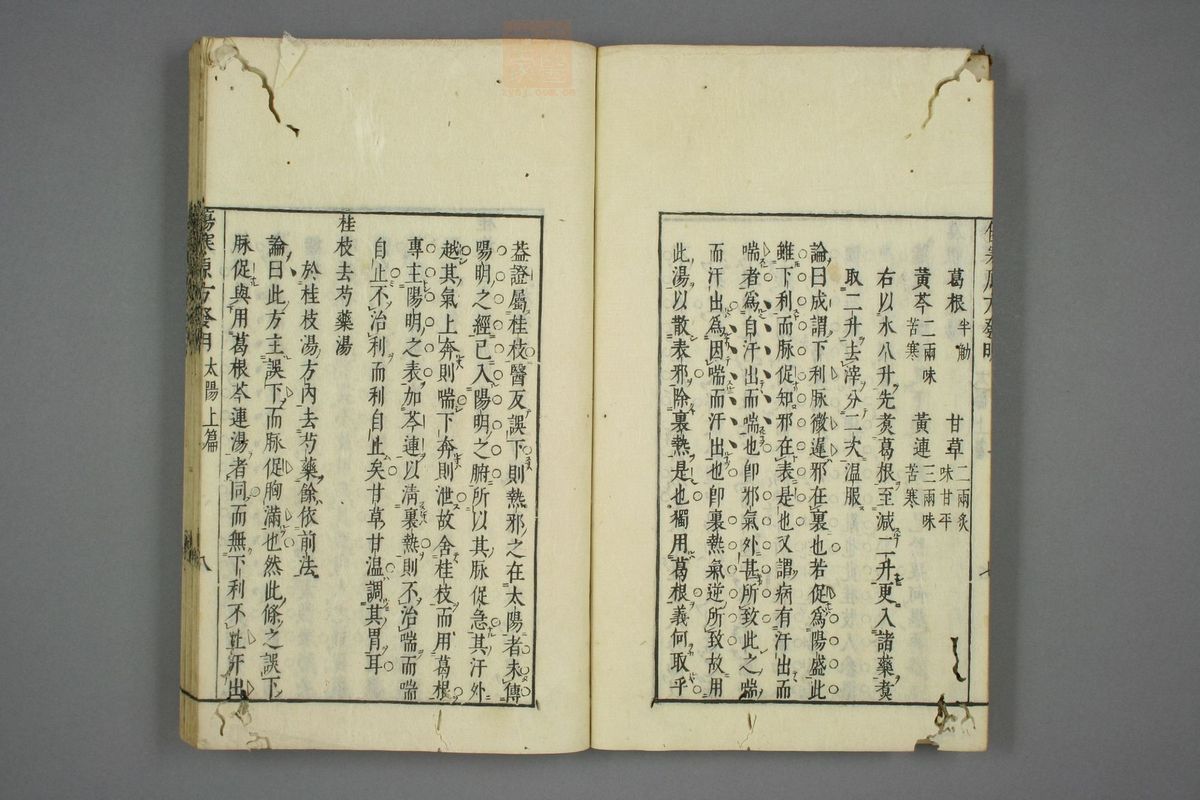 葛根半觔　甘草二兩炙味甘平
黃芩二兩味苦寒　黃連三兩味苦寒
右以水八升先煑葛根至減二升更入諸藥煑
取二升去滓分二次溫服
論曰成謂下利脉微遲邪在裏也若促爲陽盛此
雖下利而脉促知邪在表是也又謂病有汗出而
喘者爲自汗出而喘也卽邪氣外甚所致此之喘
而汗出爲因喘而汗出也卽裏熱氣逆所致故用
此湯以散表邪除裏熱是也獨用葛根義何取乎
葢證屬桂枝醫反誤下則熱邪之在太陽者未傳
陽明之經已入陽明之腑所以其脉促急其汗外
越其氣上奔則喘下奔則泄故舍桂枝而用葛根
專主陽明之表加芩連以清裏熱則不治喘而喘
自止不治利而利自止矣甘草甘温調其胃耳
桂枝去芍藥湯
於桂枝湯方內去芍藥餘依前法
論曰此方主誤下而脉促胸滿也然此條之誤下
脉促與用葛根芩連湯者同而無下利不止汗出
傷寒源方發明　太陽上篇　八